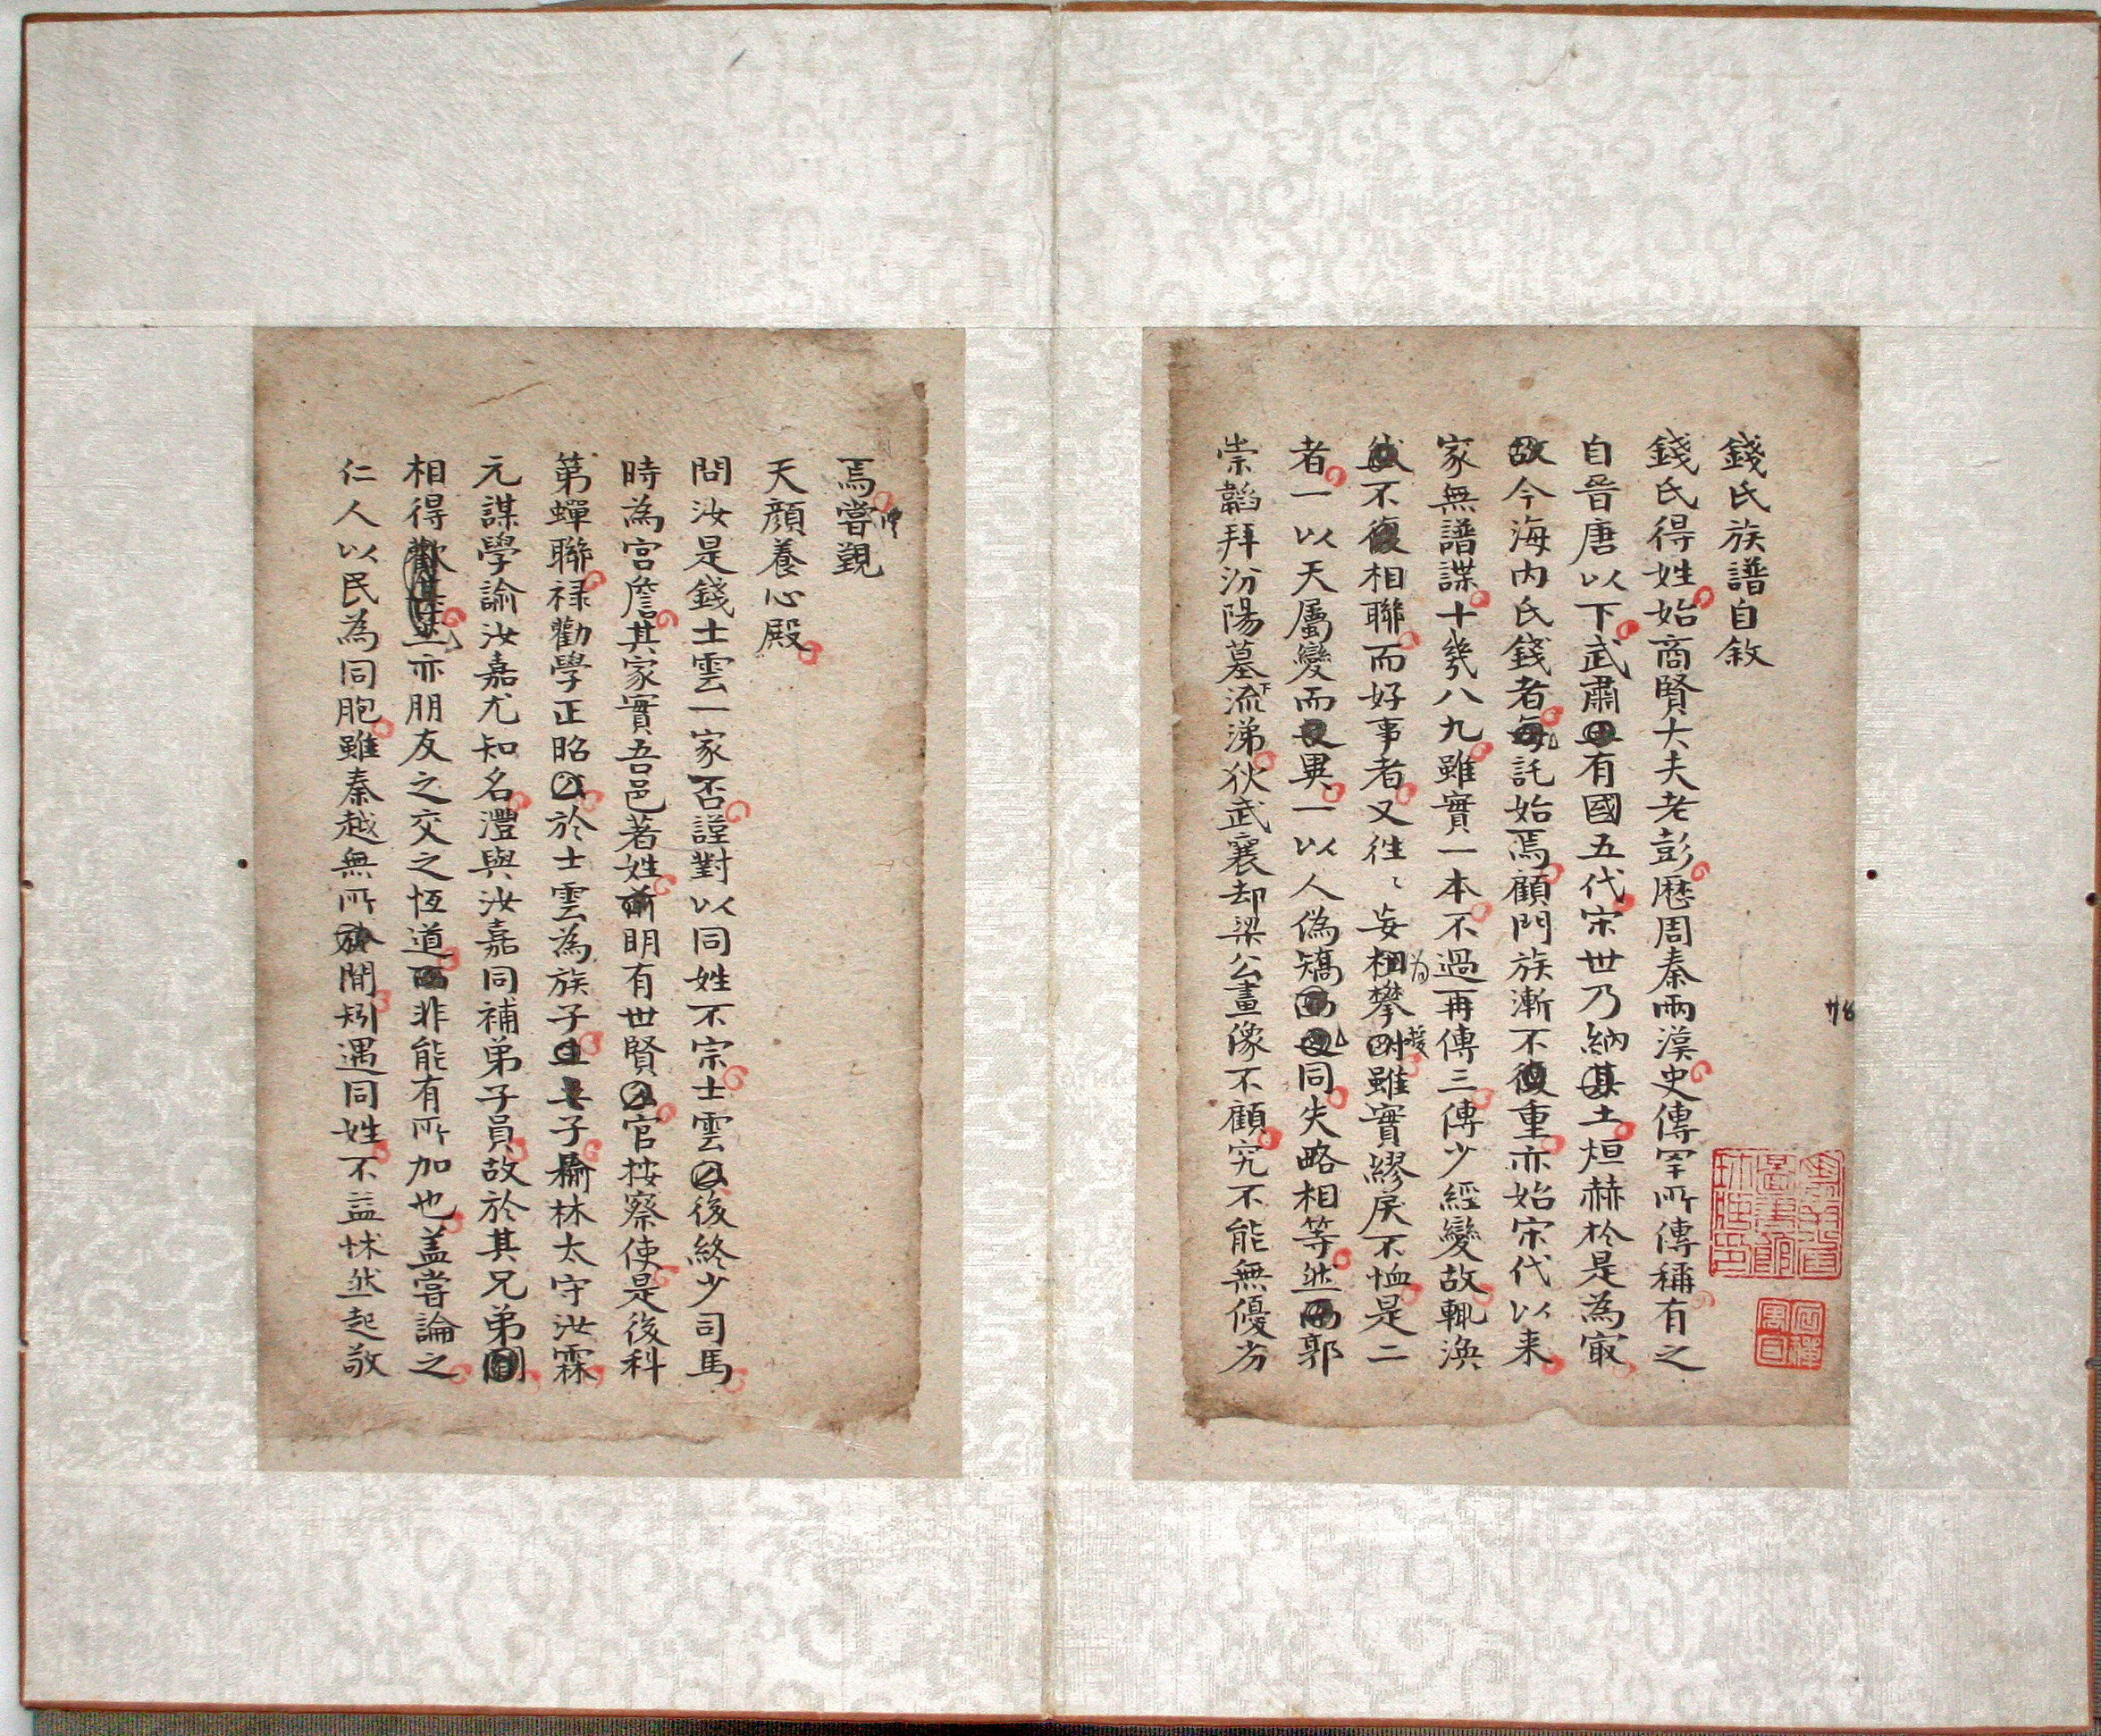 錢氏族譜自敘
錢氏得姓始商賢大夫老彭歷周秦兩漢史傳罕所傳稱有之
自晉唐以下武肅有國五代宋世乃納其土烜赫於是為冣
故今海內氏錢者每託始焉顧門族漸不復重亦始宋代以来
家無譜諜十㡬八九雖實一本不過再傳三傳少經變故輒渙
不復相聯而好事者又往〻妄相為攀附援雖實繆戾不恤是二
者一以天屬變而異一以人偽矯同失略相等然郭
崇韜拜汾陽墓下流涕狄武襄却梁公畫像不顧究不能無優劣
焉嘗覲
天顏養心殿
問汝是錢士雲一家否謹對以同姓不宗士雲後終少司馬
時為宮詹其家實吾邑著姓前明有世賢官按察使是後科
第蟬聯祿勸學正昭於士雲為族子子榆林太守汝霖
元謀學諭汝嘉尤知名灃與汝嘉同補弟子員故於其兄弟間
相得歡甚亦朋友之交之恆道非能有所加也蓋嘗論之
仁人以民為同胞雖秦越無所間矧遇同姓不益怵然起敬